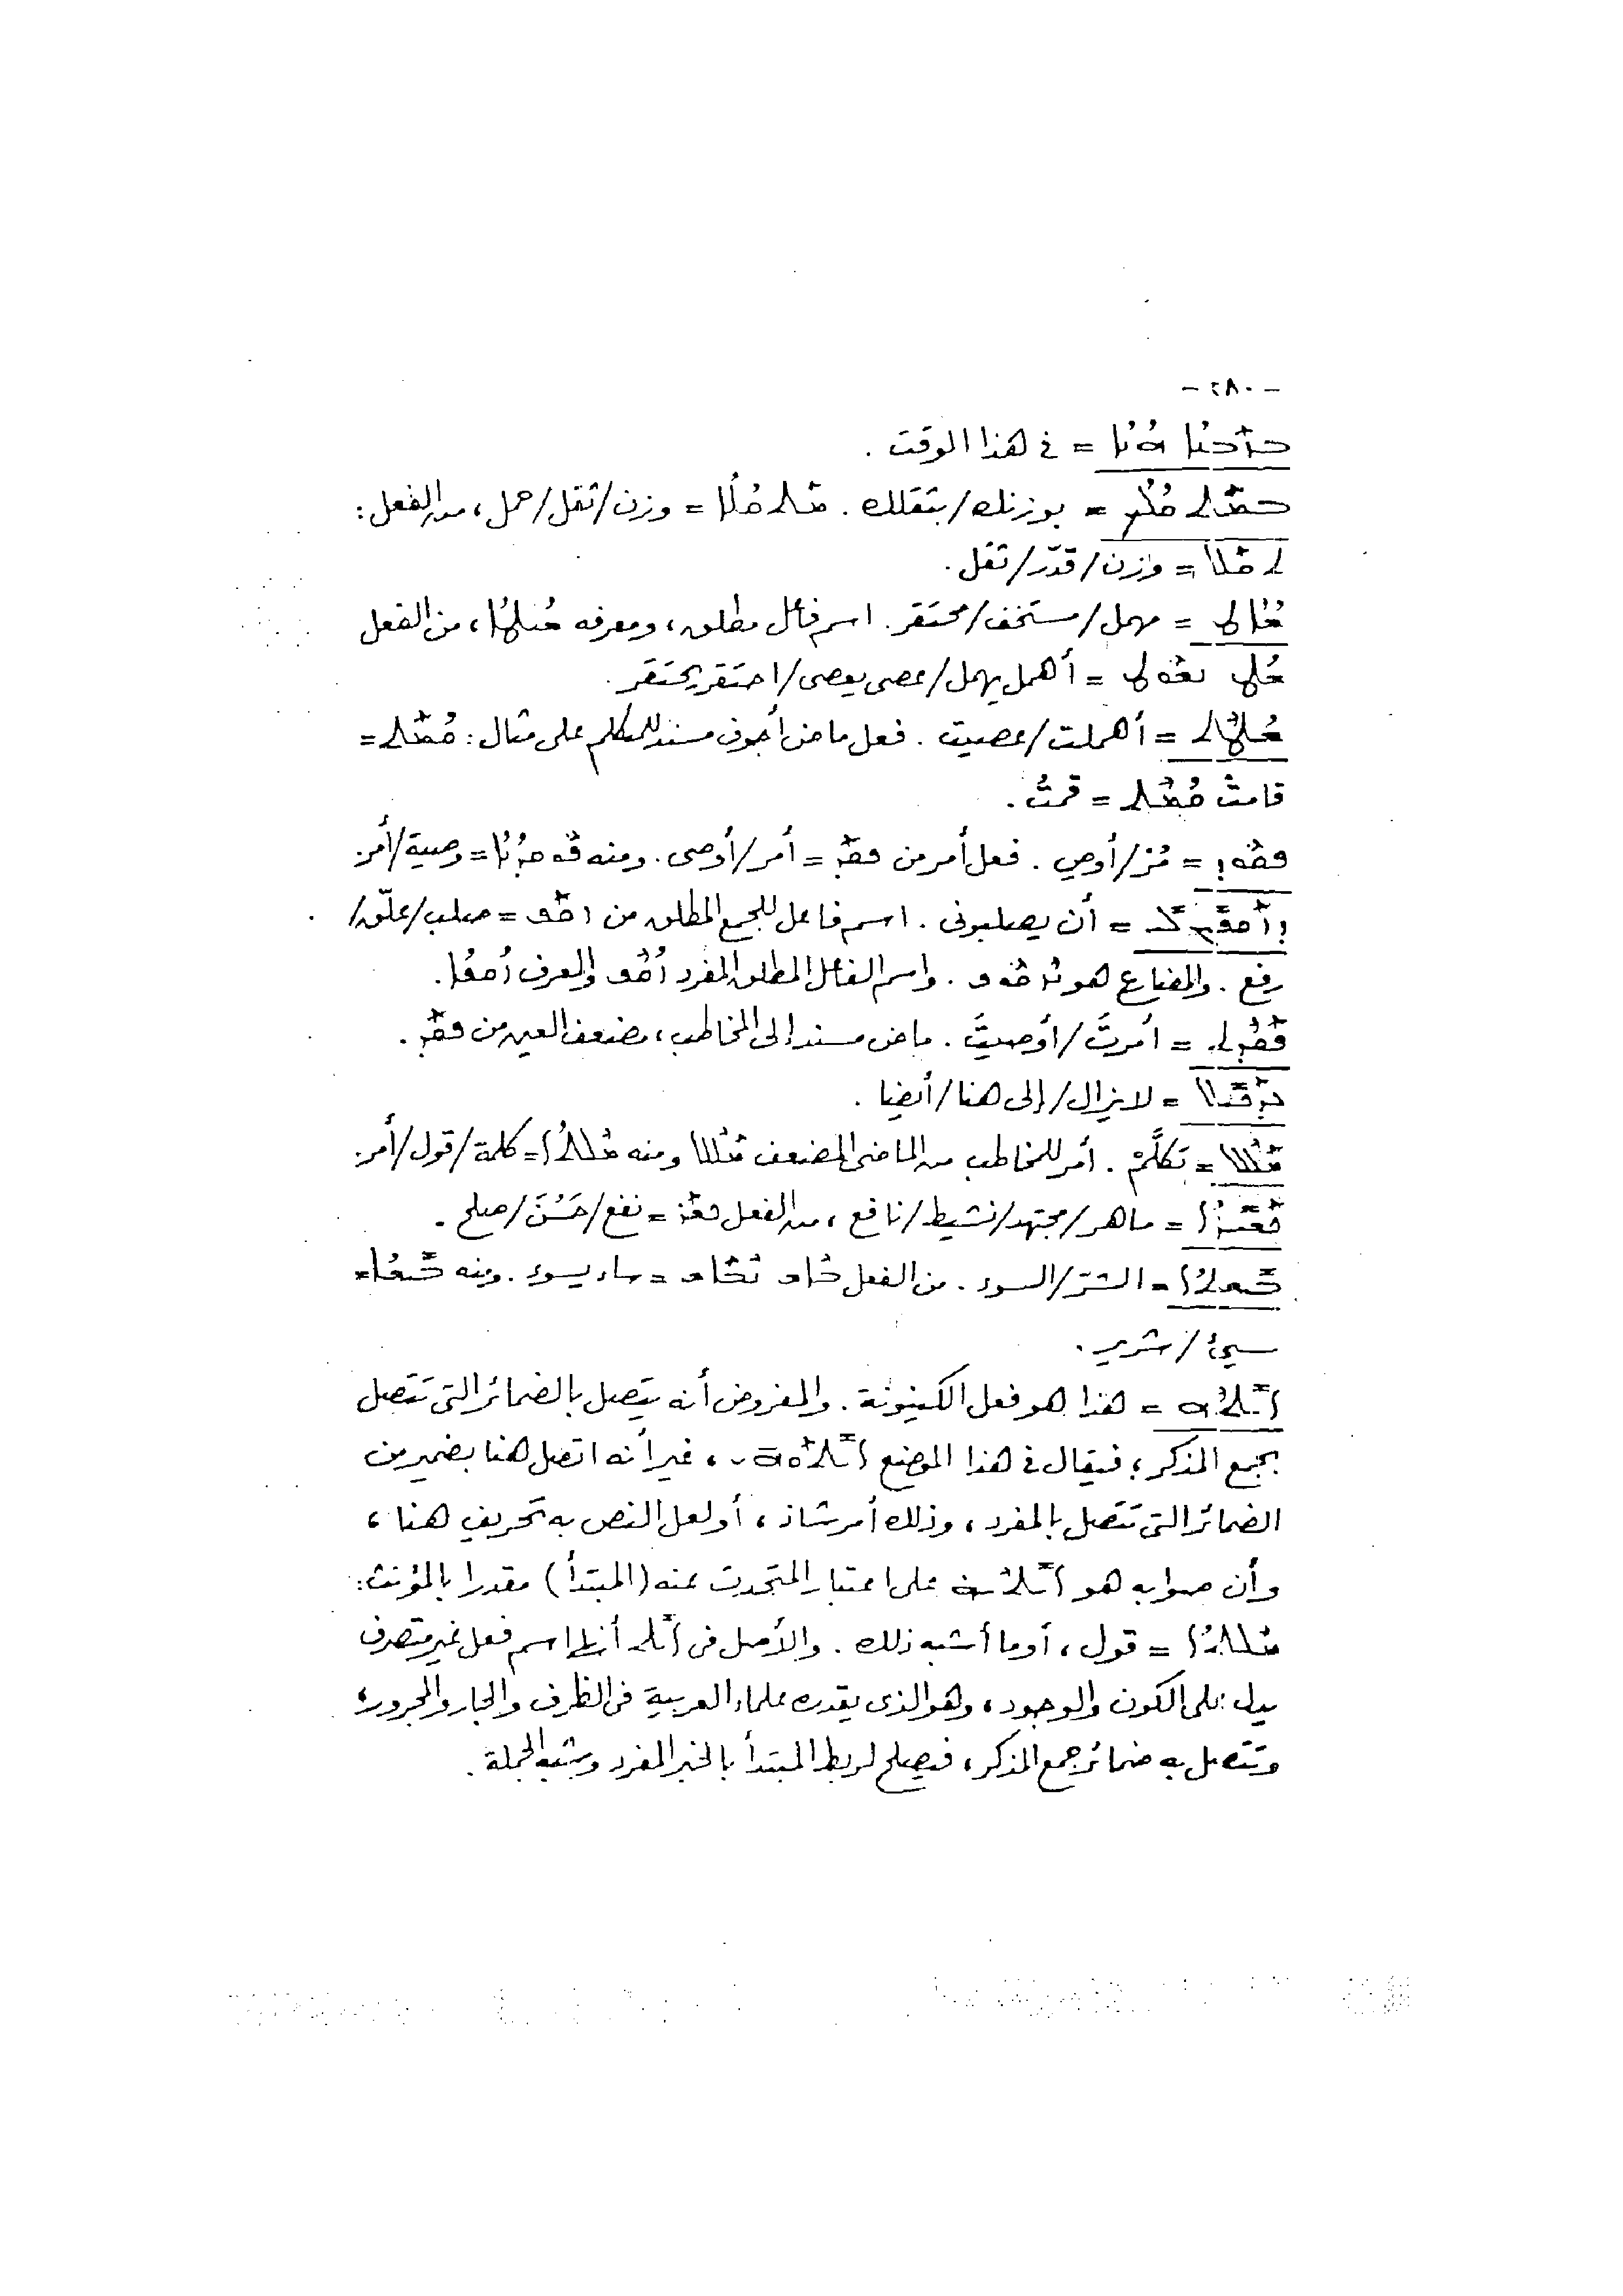 - ٢٨٠ -
ܒܙܒܢܐ ܗܢܐ = في هذا الوقت .
= بوزنك/بثقلك . ܡܬܩܠܐ = وزن/ثقل/حمل، من الفعل:
ܬܩܠ = وزن/قدّر/ثقل .
= مهمل/مستخف/محتقر . اسم فاعل مطلق، ومعرفه ، من الفعل
= أهمل يهمل/عصى يعصى/احتقر يحتقر .
= أهملت/عصيت . فعل ماض أجوف مسند للمتكلم على مثال: ܩܳܡܰܬ =
قامتْ ܩܳܡܶܬ = قمتُ .
ܦܩܘܕ = مُرْ/أوصِ . فعل أمر من ܦܩܕ = أمر/أوصى . ومنه ܦܘܩܕܢܐ = وصية/أمر .
= أن يصلبوني . اسم فاعل للجمع المطلق من ܙܩܦ = صلب/علّق/
رفع . والمضارع هو ܢܙܩܘܦ . واسم الفاعل المطلق المفرد ܙܩܦ والمعرف ܙܩܦܐ .
ܦܩܕܬ = أمرتَ/أوصيتَ . ماض مسند إلى المخاطب، مضعف العين من ܦܩܕ .
= لا يزال/إلى هنا/أيضا .
ܡܠܠ = تكلَّمْ . أمر للمخاطب من الماضي المضعف ܡܠܠ ومنه ܡܠܬܐ = كلمة/قول/أمر .
ܟܫܝܪܐ = ماهر/مجتهد/نشيط/نافع، من الفعل ܟܫܪ = نفع/حَسُنَ/صلح .
ܒܝܫܬܐ = الشرّ/السوء . من الفعل ܒܐܫ ܢܒܐܫ = ساء يسوء . ومنه ܒܝܫܐ =
سيئ/شرير .
= هذا هو فعل الكينونة . والمفروض أنه يتصل بالضمائر التي تتصل
بجمع المذكر؛ فيقال في هذا الموضع ܐܝܬܘܗܝ، غير أنه اتصل هنا بضمير من
الضمائر التي تتصل بالمفرد، وذلك أمر شاذ، أو لعل النص به تحريف هنا،
وأن صوابه هو ܐܝܬܝܗ على اعتبار المتحدث عنه (المبتدأ) مقدرا بالمؤنث:
ܡܠܬܐ = قول، أو ما أشبه ذلك . والأصل في ܐܝܬ أنها اسم فعل غير متصرف
يدل على الكون والوجود، وهو الذي يقدره علماء العربية في الظرف والجار والمجرور،
وتتصل به ضمائر جمع المذكر، فيصلح لربط المبتدأ بالخبر المفرد وشبه الجملة .